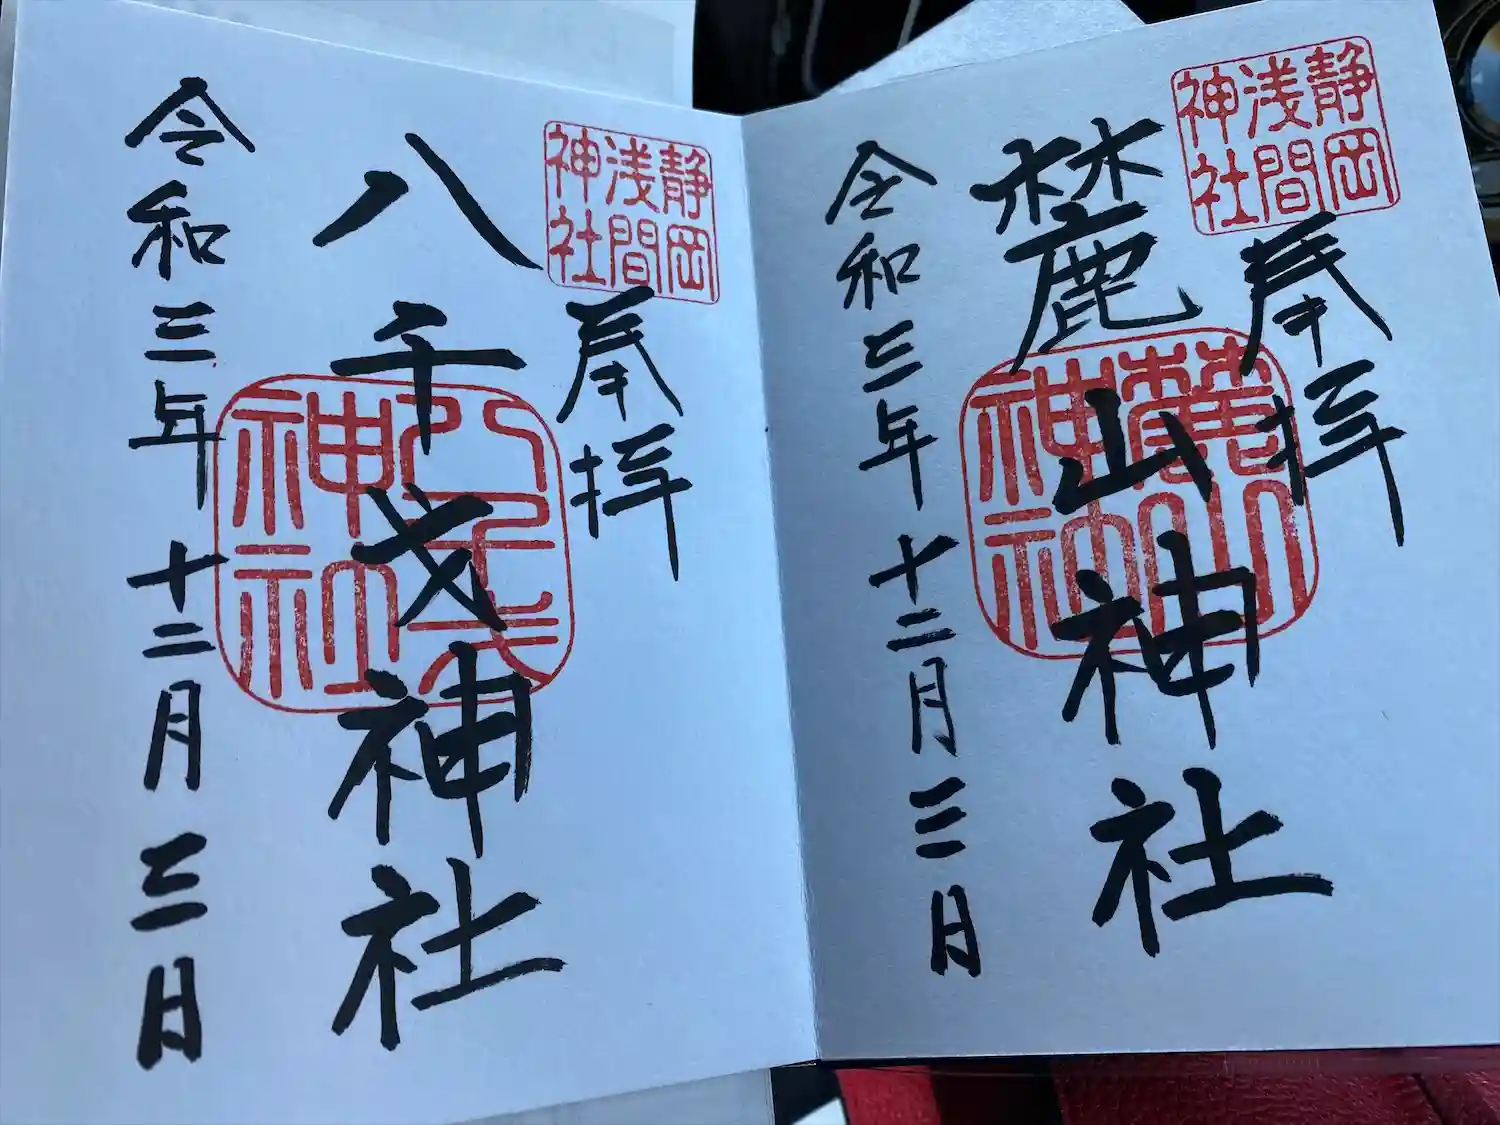 静岡
浅間
神社
奉拝
麓山神社
麓山
神社
令和三年十二月三日
静岡
浅間
神社
奉拝
八千戈神社
八千戈
神社
令和三年十二月三日